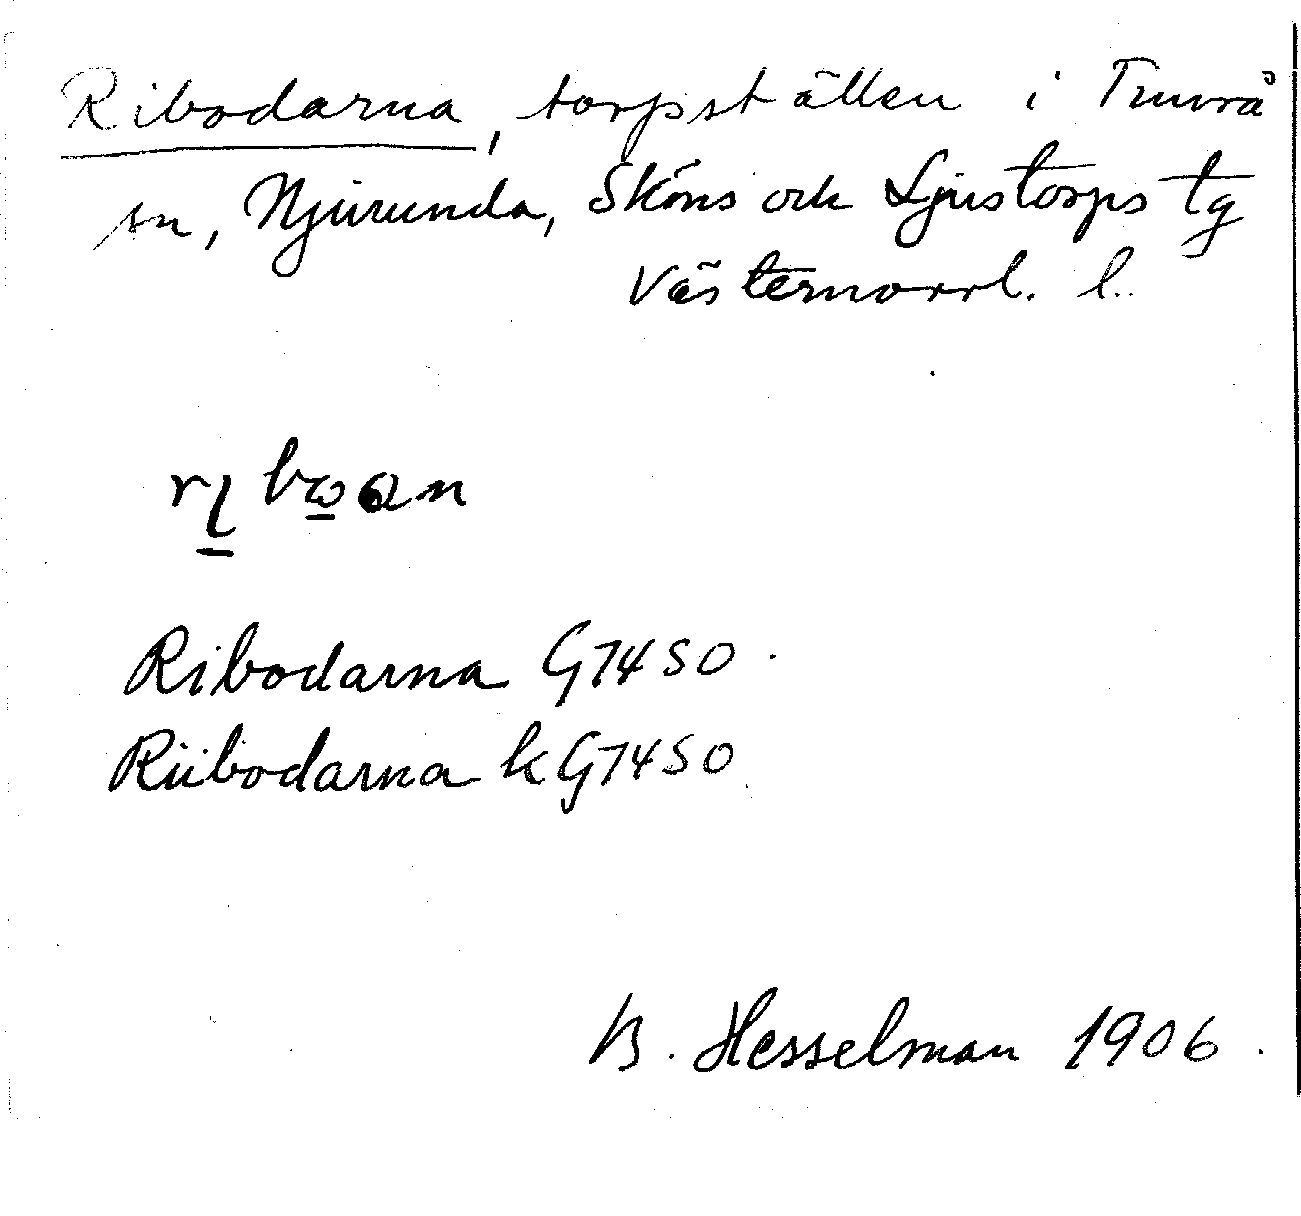 Ribodarna, torpställen i Timrå
sn, Njurunda, Sköns och Ljustorps tg
Västernorrl. l.
Ribodarna G7450
Riibodarna k G7450
B. Hesselman 1906.